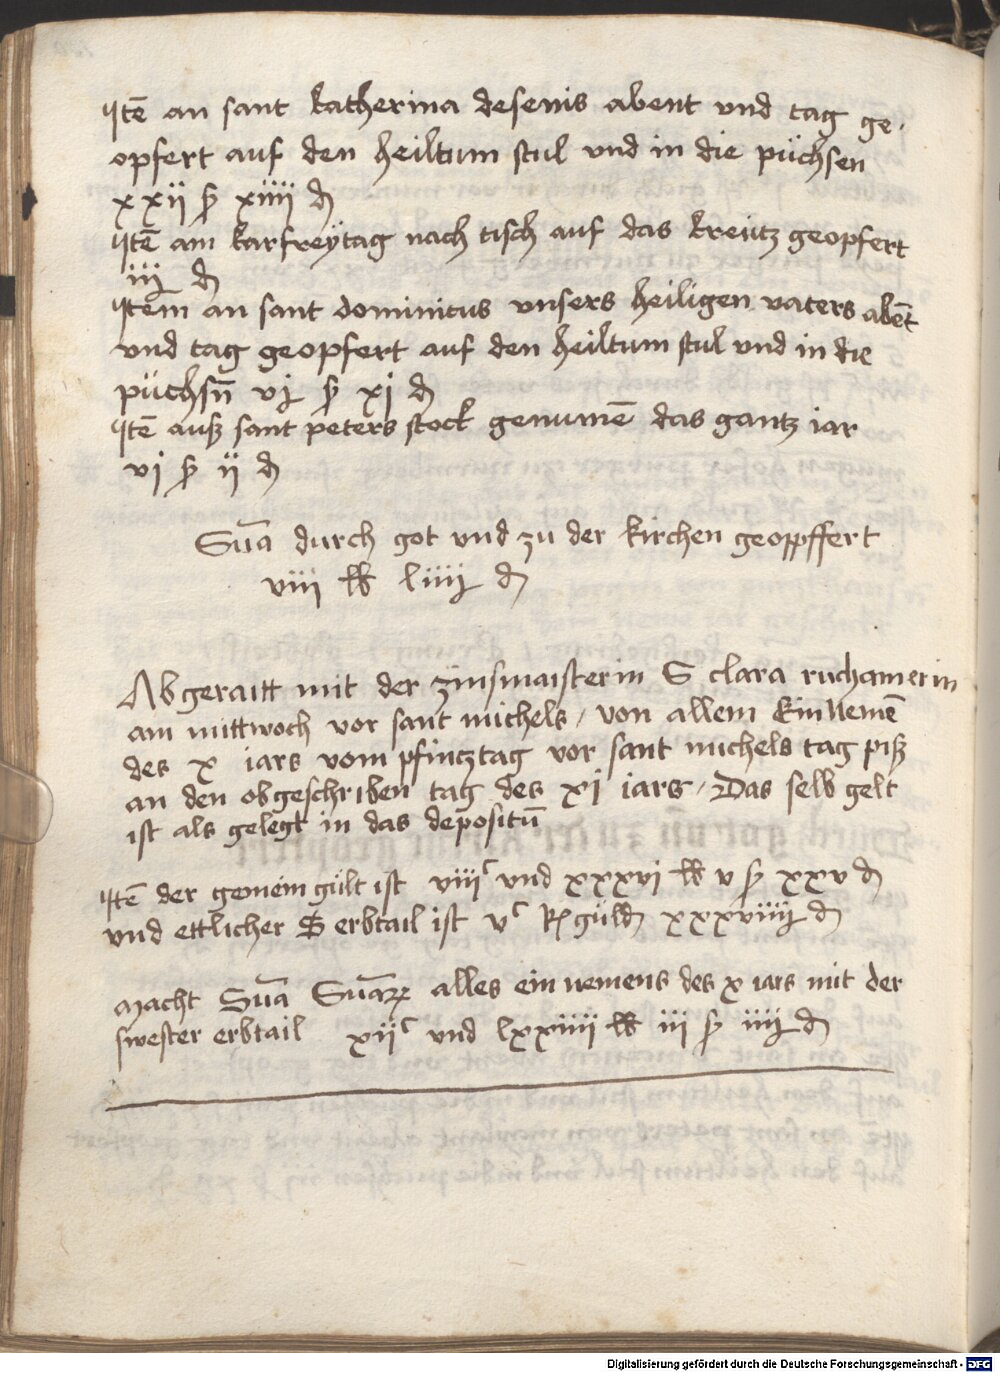 Itē an sant katherina desenis abent vnd tag ge
opfert auf den heiltum stul vnd in die püchsen
xxij ß xiiij ₰
Itē am karfreÿtag nach tisch auf das kreütz geopfert
iij ₰
Item an sant dominicus vnsers heiligen vaters abēt
vnd tag geopfert auf den heiltum stul vnd in die
püchsn̄ vj ß xj ₰
Itē auß sant peters stock genumē das gantz iar
vj ß ij ₰
Sūa durch got vnd zu der kirchen geopffert
viij lb liiij ₰
Abgeraitt mit der zinsmaisterin S clara ruchamerin
am mittwoch vor sant michels / von allem Einnemē
des x iars vom pfincztag vor sant michels tag piß
an den obgeschriben tag des xj iars / Das selb gelt
ist als gelegt in das depositū
Itē der gemein gült ist viijᶜ vnd xxxvi lb v ß xxv ₰
vnd ettlicher S erbtail ist vᶜ R guld xxxviiij ₰
Macht Sūa Sūaꝝ alles ein nemens des x iars mit der
swester erbtail xijᶜ vnd lxxiiij lb iij ß iiij ₰
Digitalisierung gefördert durch die Deutsche Forschungsgemeinschaft - DFG